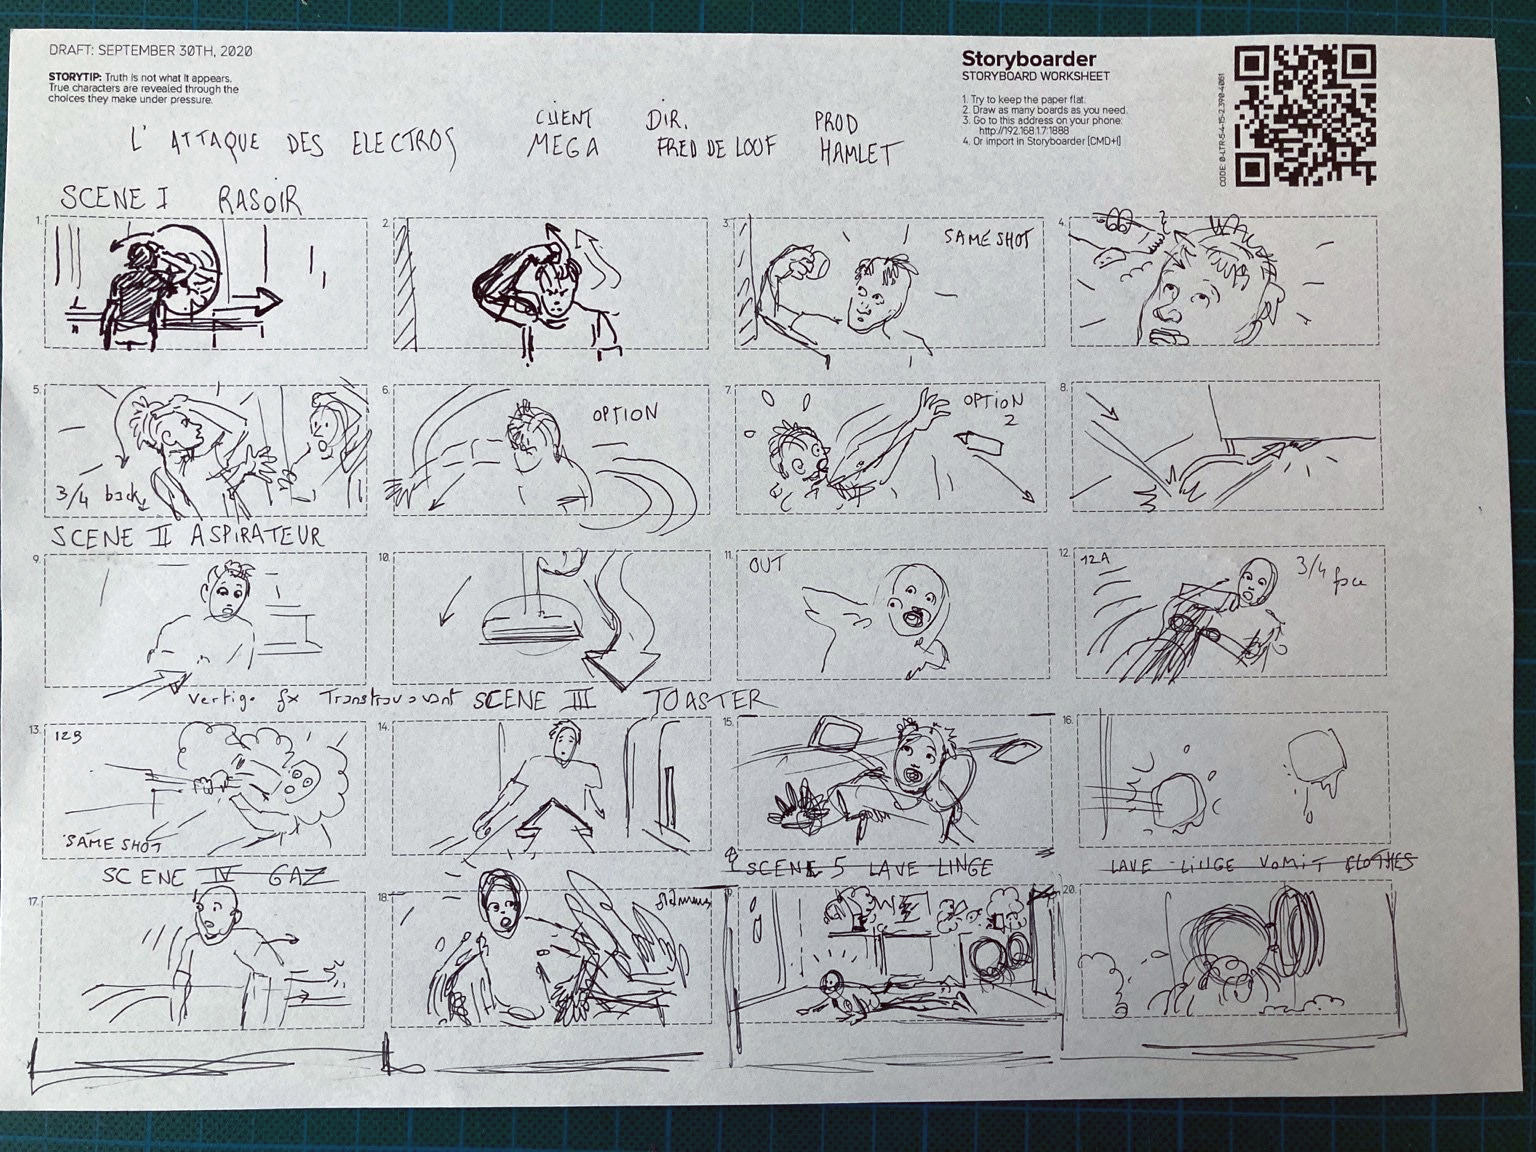 DRAFT: SEPTEMBER 30TH, 2020
STORYTIP: Truth is not what it appears.
True characters are revealed through the
choices they make under pressure.
Storyboarder
STORYBOARD WORKSHEET
1. Try to keep the paper flat.
2. Draw as many boards as you need.
3. Go to this address on your phone:
http://192.168.1.7:1888
4. Or import in Storyboarder [CMD+I]
L'ATTAQUE DES ELECTROS
CLIENT
MEGA
DIR.
FRED DE LOOF
PROD
HAMLET
SCENE I RASOIR
1.
2.
3.
SAME SHOT
4.
5.
3/4 back
6.
OPTION
7.
OPTION
2
8.
SCENE II ASPIRATEUR
9.
10.
11.
OUT
12.
12A
3/4 face
Vertigo fx Transtravavant
SCENE III TOASTER
13.
12B
SAME SHOT
14.
15.
16.
SCENE IV GAZ
SCENE 5 LAVE LINGE
LAVE LINGE VOMIT CLOTHES
17.
18.
20.